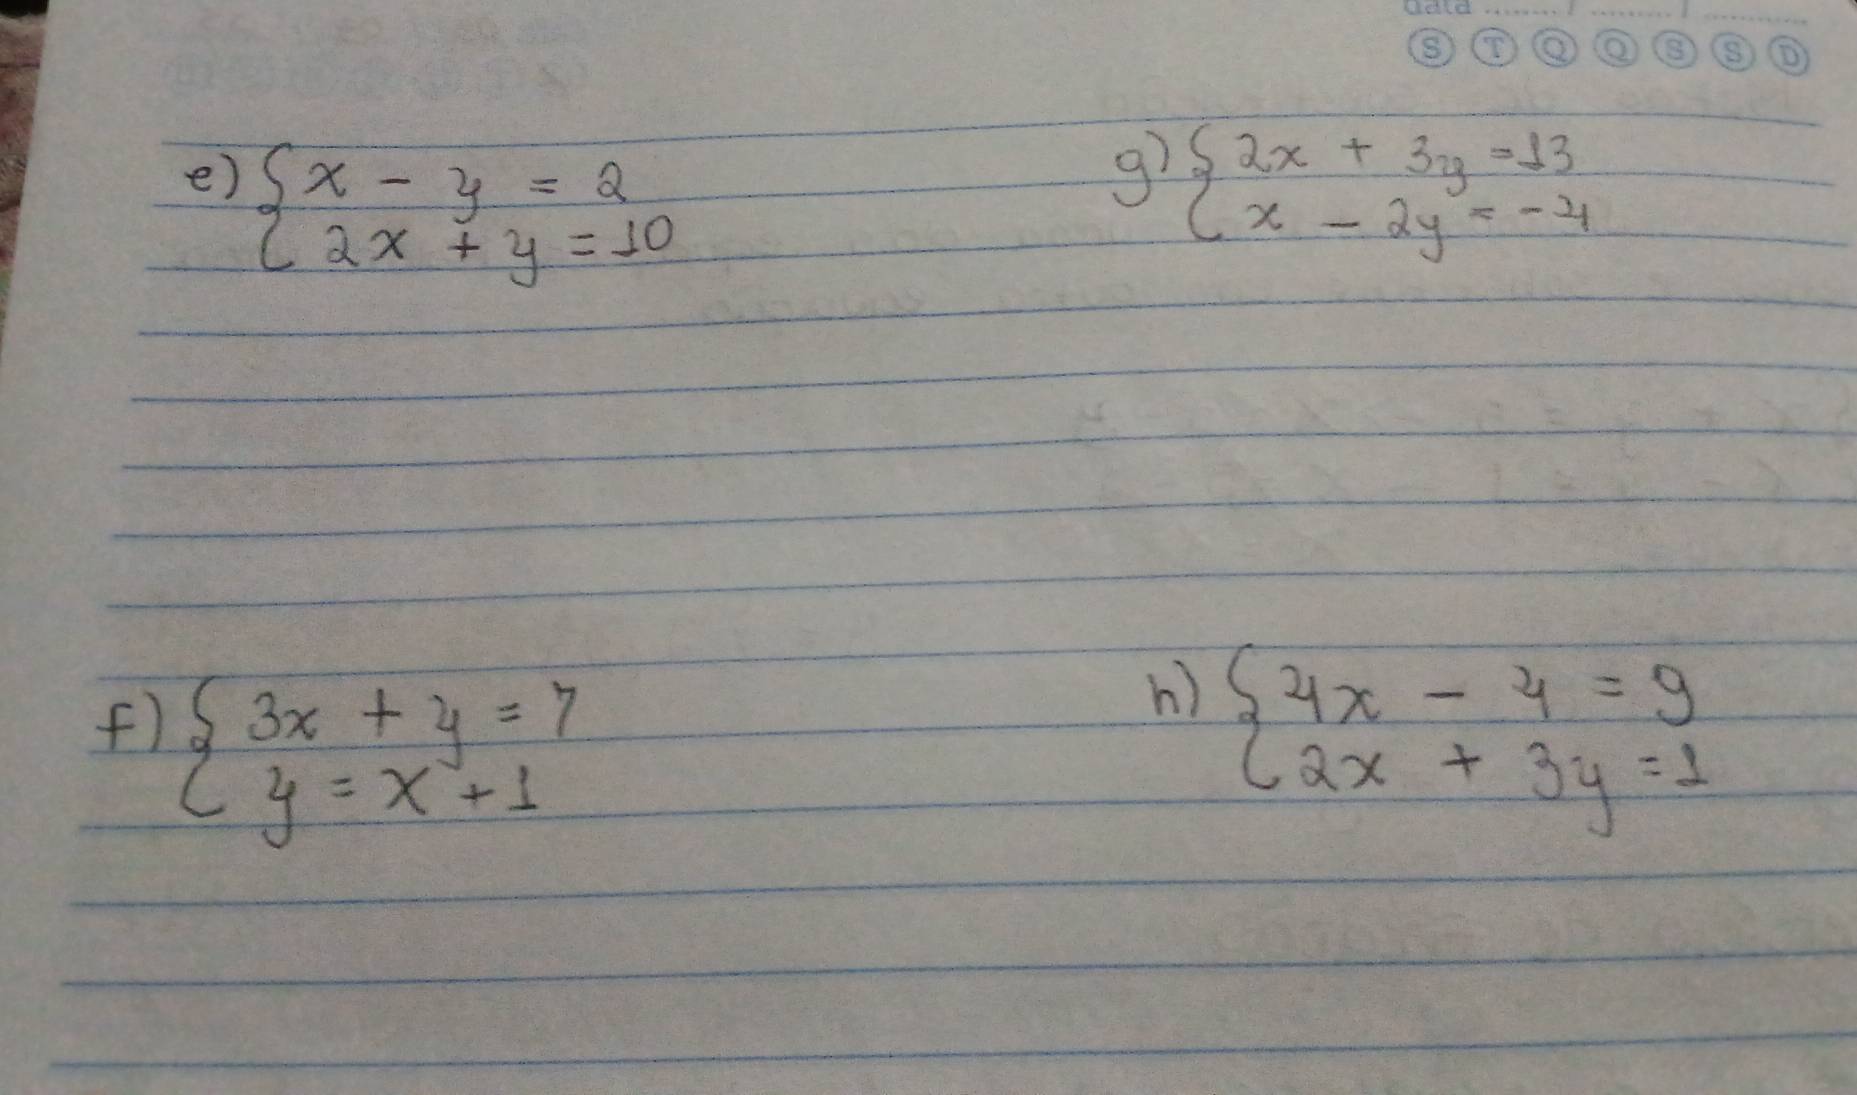 data ....... / ....... / .......
S T Q Q S S D
e) { x - y = 2
2x + y = 10
g) { 2x + 3y = 13
x - 2y = -4
f) { 3x + y = 7
y = x + 1
h) { 4x - 4 = 9
2x + 3y = 1